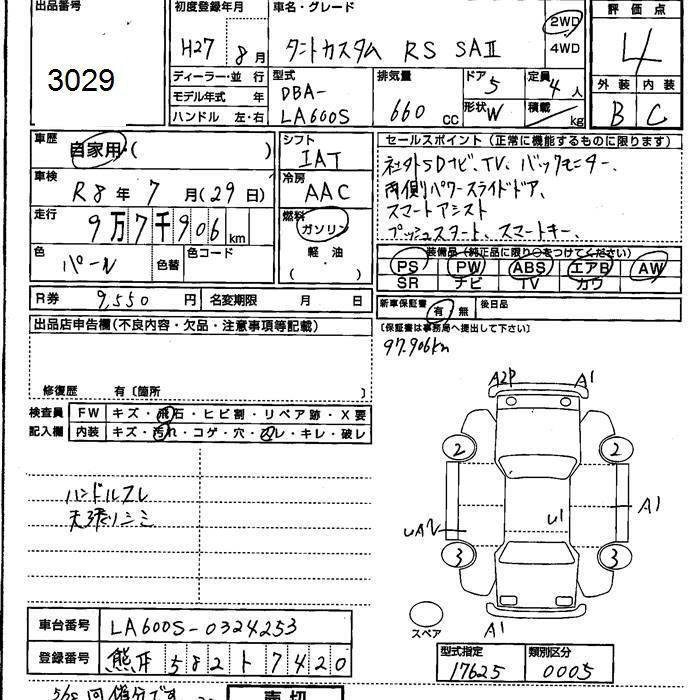 出品番号
3029
初度登録年月
H27 8月
車名・グレード
タントカスタム RS SAⅡ
2WD
4WD
評価点
4
外装 内装
B C
ディーラー・並行
モデル年式 年
ハンドル 左・右
型式
DBA-
LA600S
排気量
660 cc
ドア
5
形状 W
定員
4人
積載
kg
車歴
自家用・( )
車検
R8年 7月(29日)
走行
9万7千906km
色
パール
色替
色コード
シフト
IAT
冷房
AAC
燃料
ガソリン
軽油
( ・ )
セールスポイント(正常に機能するものに限ります)
社外SDナビ、TV、バックモニター、
両側パワースライドドア、
スマートアシスト
プッシュスタート、スマートキー、
装備品(純正品に限り○をつけてください)
PS PW ABS エアB AW
SR ナビ TV カワ
R券 9,550円
名変期限 月 日
新車保証書 有 無
後日品
(保証書は事務局へ提出して下さい)
97.906km
出品店申告欄(不良内容・欠品・注意事項等記載)
修復歴 有〔箇所 〕
検査員
記入欄
FW キズ・飛石・ヒビ割・リペア跡・X要
内装 キズ・汚れ・コゲ・穴・スレ・キレ・破レ
ハンドルスレ
天張リシミ
A2P
A1
2
2
A1
U1
UA2
3
3
スペア
A1
車台番号 LA600S-0324253
登録番号 熊本 582 ト 7420
型式指定
17625
類別区分
0005